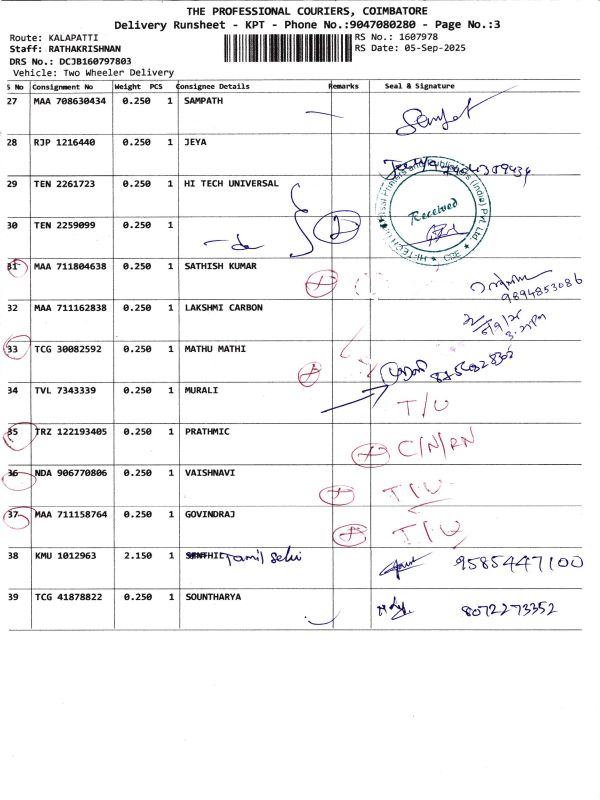 THE PROFESSIONAL COURIERS, COIMBATORE
Delivery Runsheet - KPT - Phone No.:9047080280 - Page No.:3
Route: KALAPATTI
Staff: RATHAKRISHNAN
DRS No.: DCJB160797803
Vehicle: Two Wheeler Delivery
RS No.: 1607978
RS Date: 05-Sep-2025
S No Consignment No Weight PCS Consignee Details Remarks Seal & Signature
27 MAA 708630434 0.250 1 SAMPATH
28 RJP 1216440 0.250 1 JEYA
29 TEN 2261723 0.250 1 HI TECH UNIVERSAL
Received
30 TEN 2259099 0.250 1 - do 2
31 MAA 711804638 0.250 1 SATHISH KUMAR
9894853086
32 MAA 711162838 0.250 1 LAKSHMI CARBON
33 TCG 30082592 0.250 1 MATHU MATHI
34 TVL 7343339 0.250 1 MURALI T/U
35 TRZ 122193405 0.250 1 PRATHMIC C/N/RN
36 NDA 906770806 0.250 1 VAISHNAVI T/U
37 MAA 711158764 0.250 1 GOVINDRAJ T/U
38 KMU 1012963 2.150 1 SENTHIL Tamil Selvi 9585447100
39 TCG 41878822 0.250 1 SOUNTHARYA 8072273352